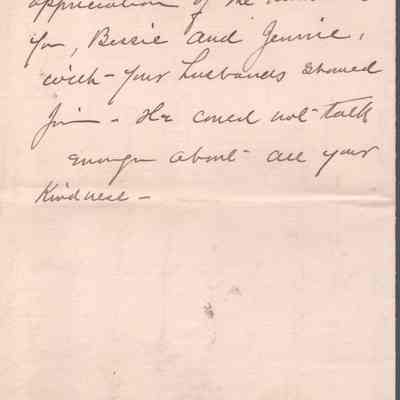 appreciation of the
you, Bessie and Jennie,
with - your husbands showed
Jim - He could not talk
enough about all your
Kindness -